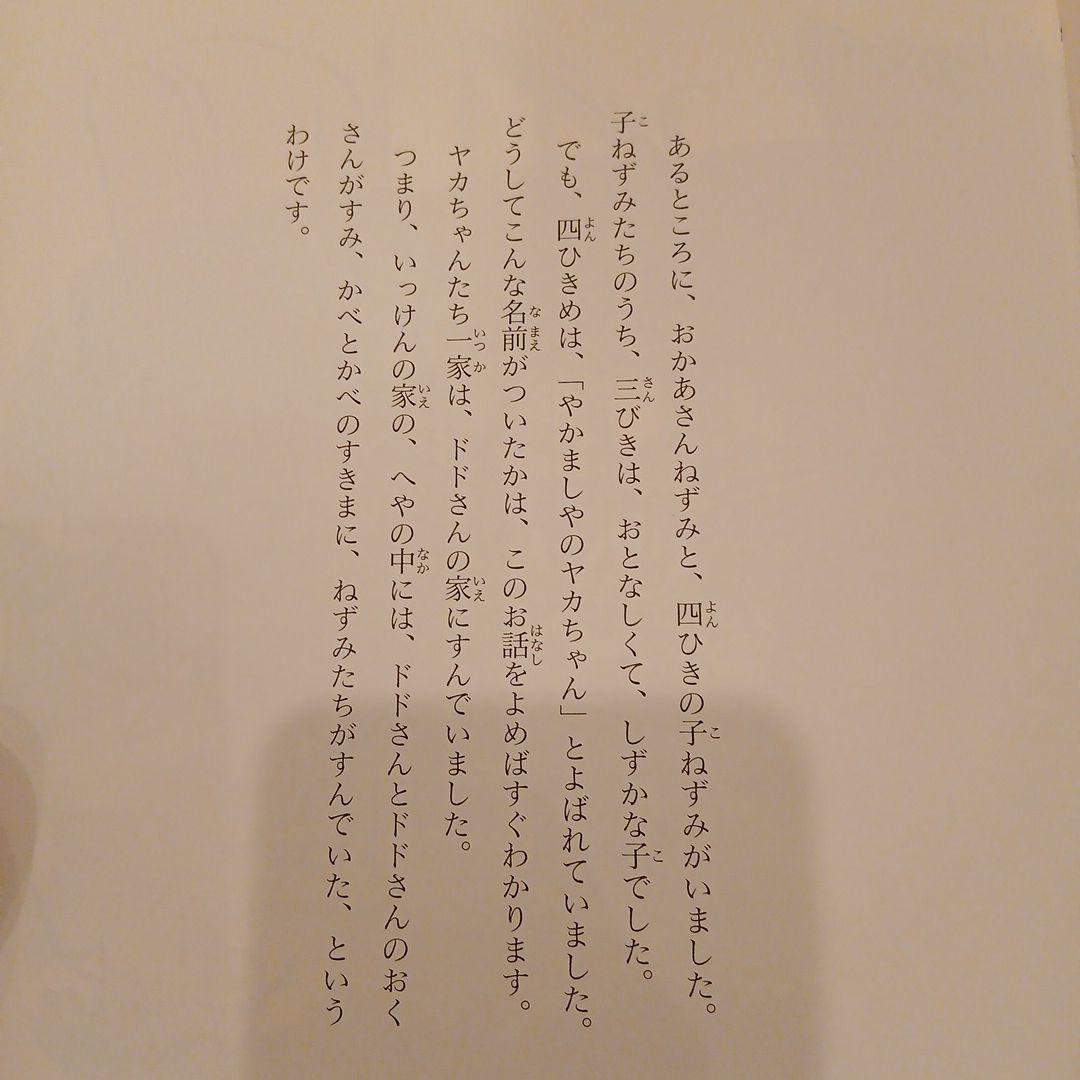 あるところに、おかあさんねずみと、四ひきの子ねずみがいました。
子ねずみたちのうち、三びきは、おとなしくて、しずかな子でした。
でも、四ひきめは、「やかましやのヤカちゃん」とよばれていました。
どうしてこんな名前がついたかは、このお話をよめばすぐわかります。
ヤカちゃんたち一家は、ドドさんの家にすんでいました。
つまり、いっけんの家の、へやの中には、ドドさんとドドさんのおく
さんがすみ、かべとかべのすきまに、ねずみたちがすんでいた、という
わけです。